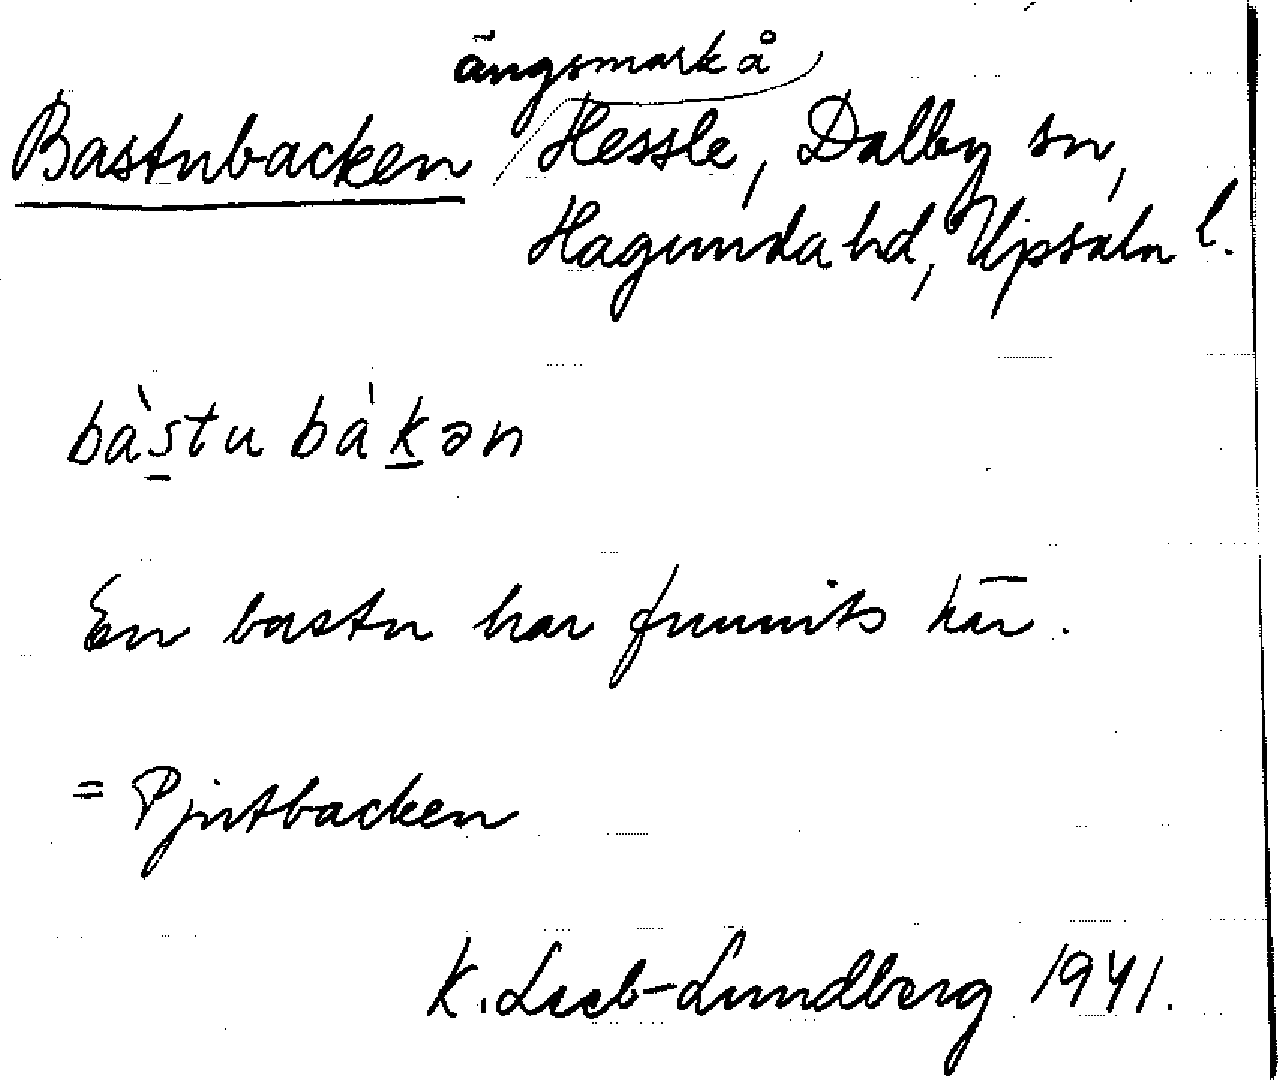 ängsmark å
Bastubacken Hessle, Dalby sn,
Hagunda hd, Upsala l.
bàstu bàkən
En bastu har funnits här.
= Pjutbacken
K. Leeb-Lundberg 1941.